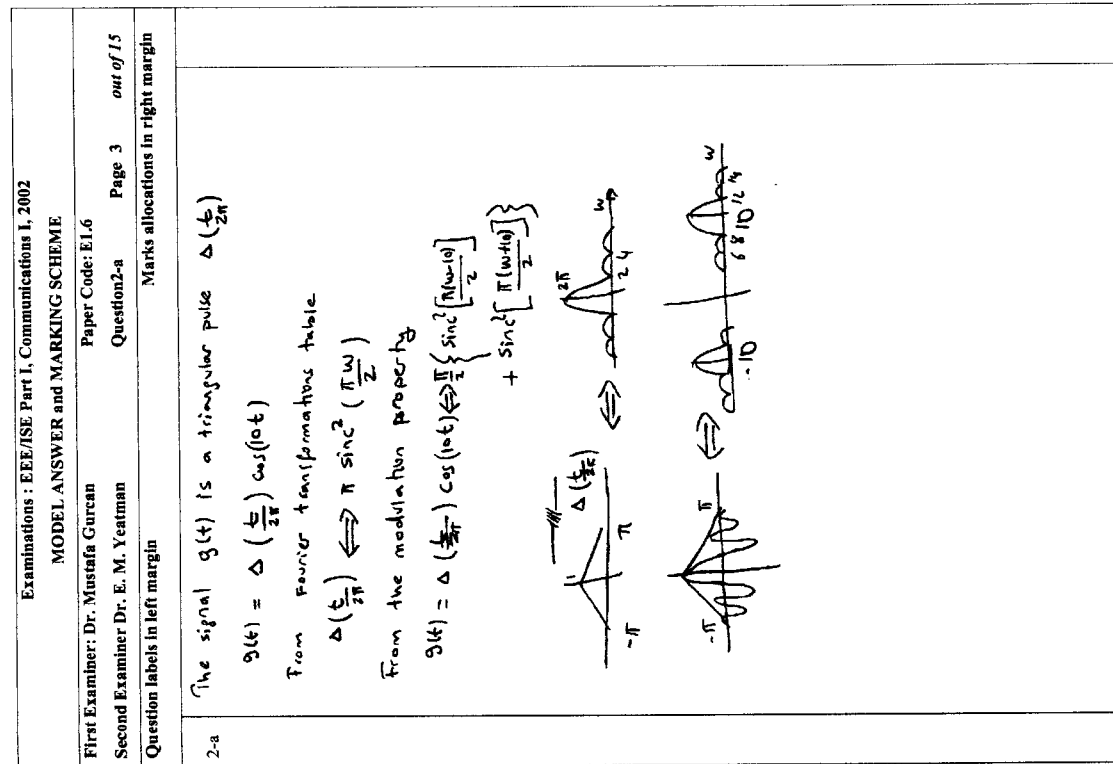 Examinations : EEE/ISE Part I, Communications I, 2002
MODEL ANSWER and MARKING SCHEME
First Examiner: Dr. Mustafa Gurcan Paper Code: E1.6
Second Examiner Dr. E. M. Yeatman Question2-a Page 3 out of 15
Question labels in left margin Marks allocations in right margin
2-a The signal g(t) is a triangular pulse Δ(t/2π)
g(t) = Δ(t/2π) cos(10t)
From Fourier transformations table
Δ(t/2π) ⇔ π sinc²(πw/2)
From the modulation property
g(t) = Δ(t/2π) cos(10t) ⇔ π/2 { sinc²[π(w-10)/2]
+ sinc²[π(w+10)/2] }
1 Δ(t/2π) ⇔ 2π
-π π 2 4 w
-π π ⇔ -10 6 8 10 12 14 w